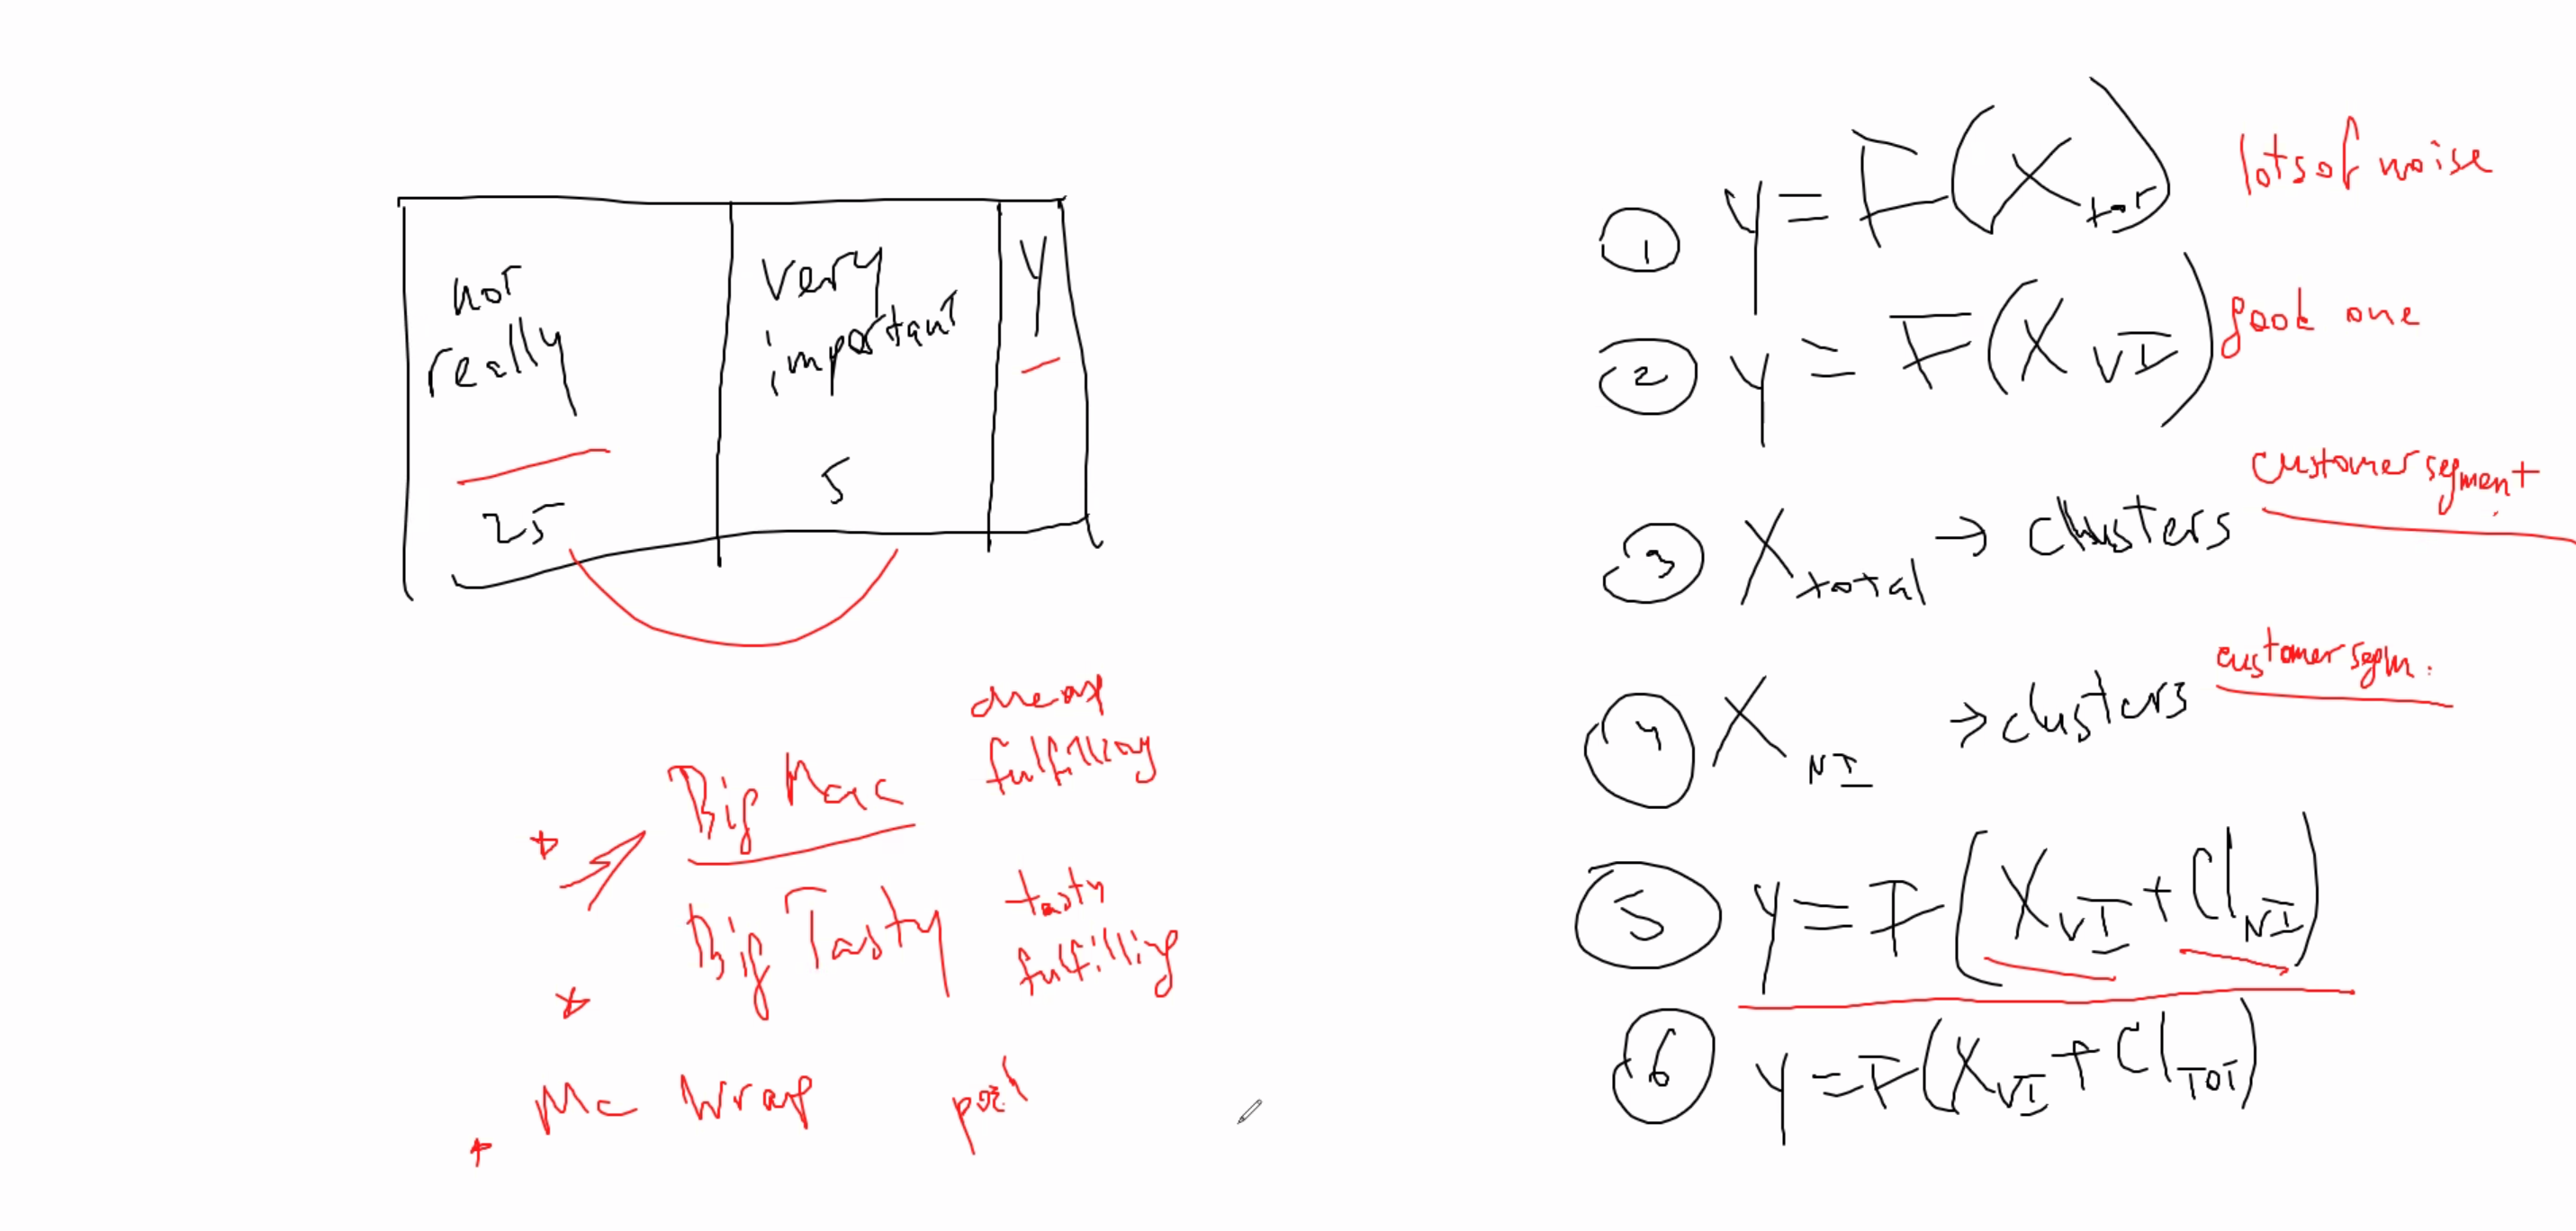 not
really
25
very
important
5
y
cheap
fulfilling
Big Mac
Big Tasty
tasty
fulfilling
Mc Wrap
① y = F(X tot) lots of noise
② y = F(X VI) good one
③ X total → clusters customer segment.
④ X NI → clusters customer segm.
⑤ y = F(X VI + Cl NI)
⑥ y = F(X VI + Cl TOT)